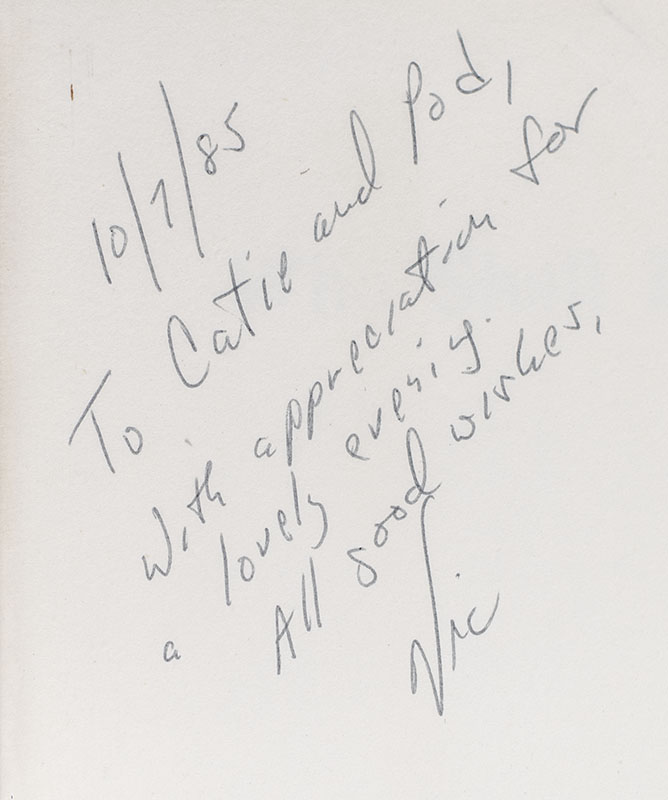 10/7/85
To Catie and Pod,
With appreciation for
a lovely evening.
All good wishes,
Vic